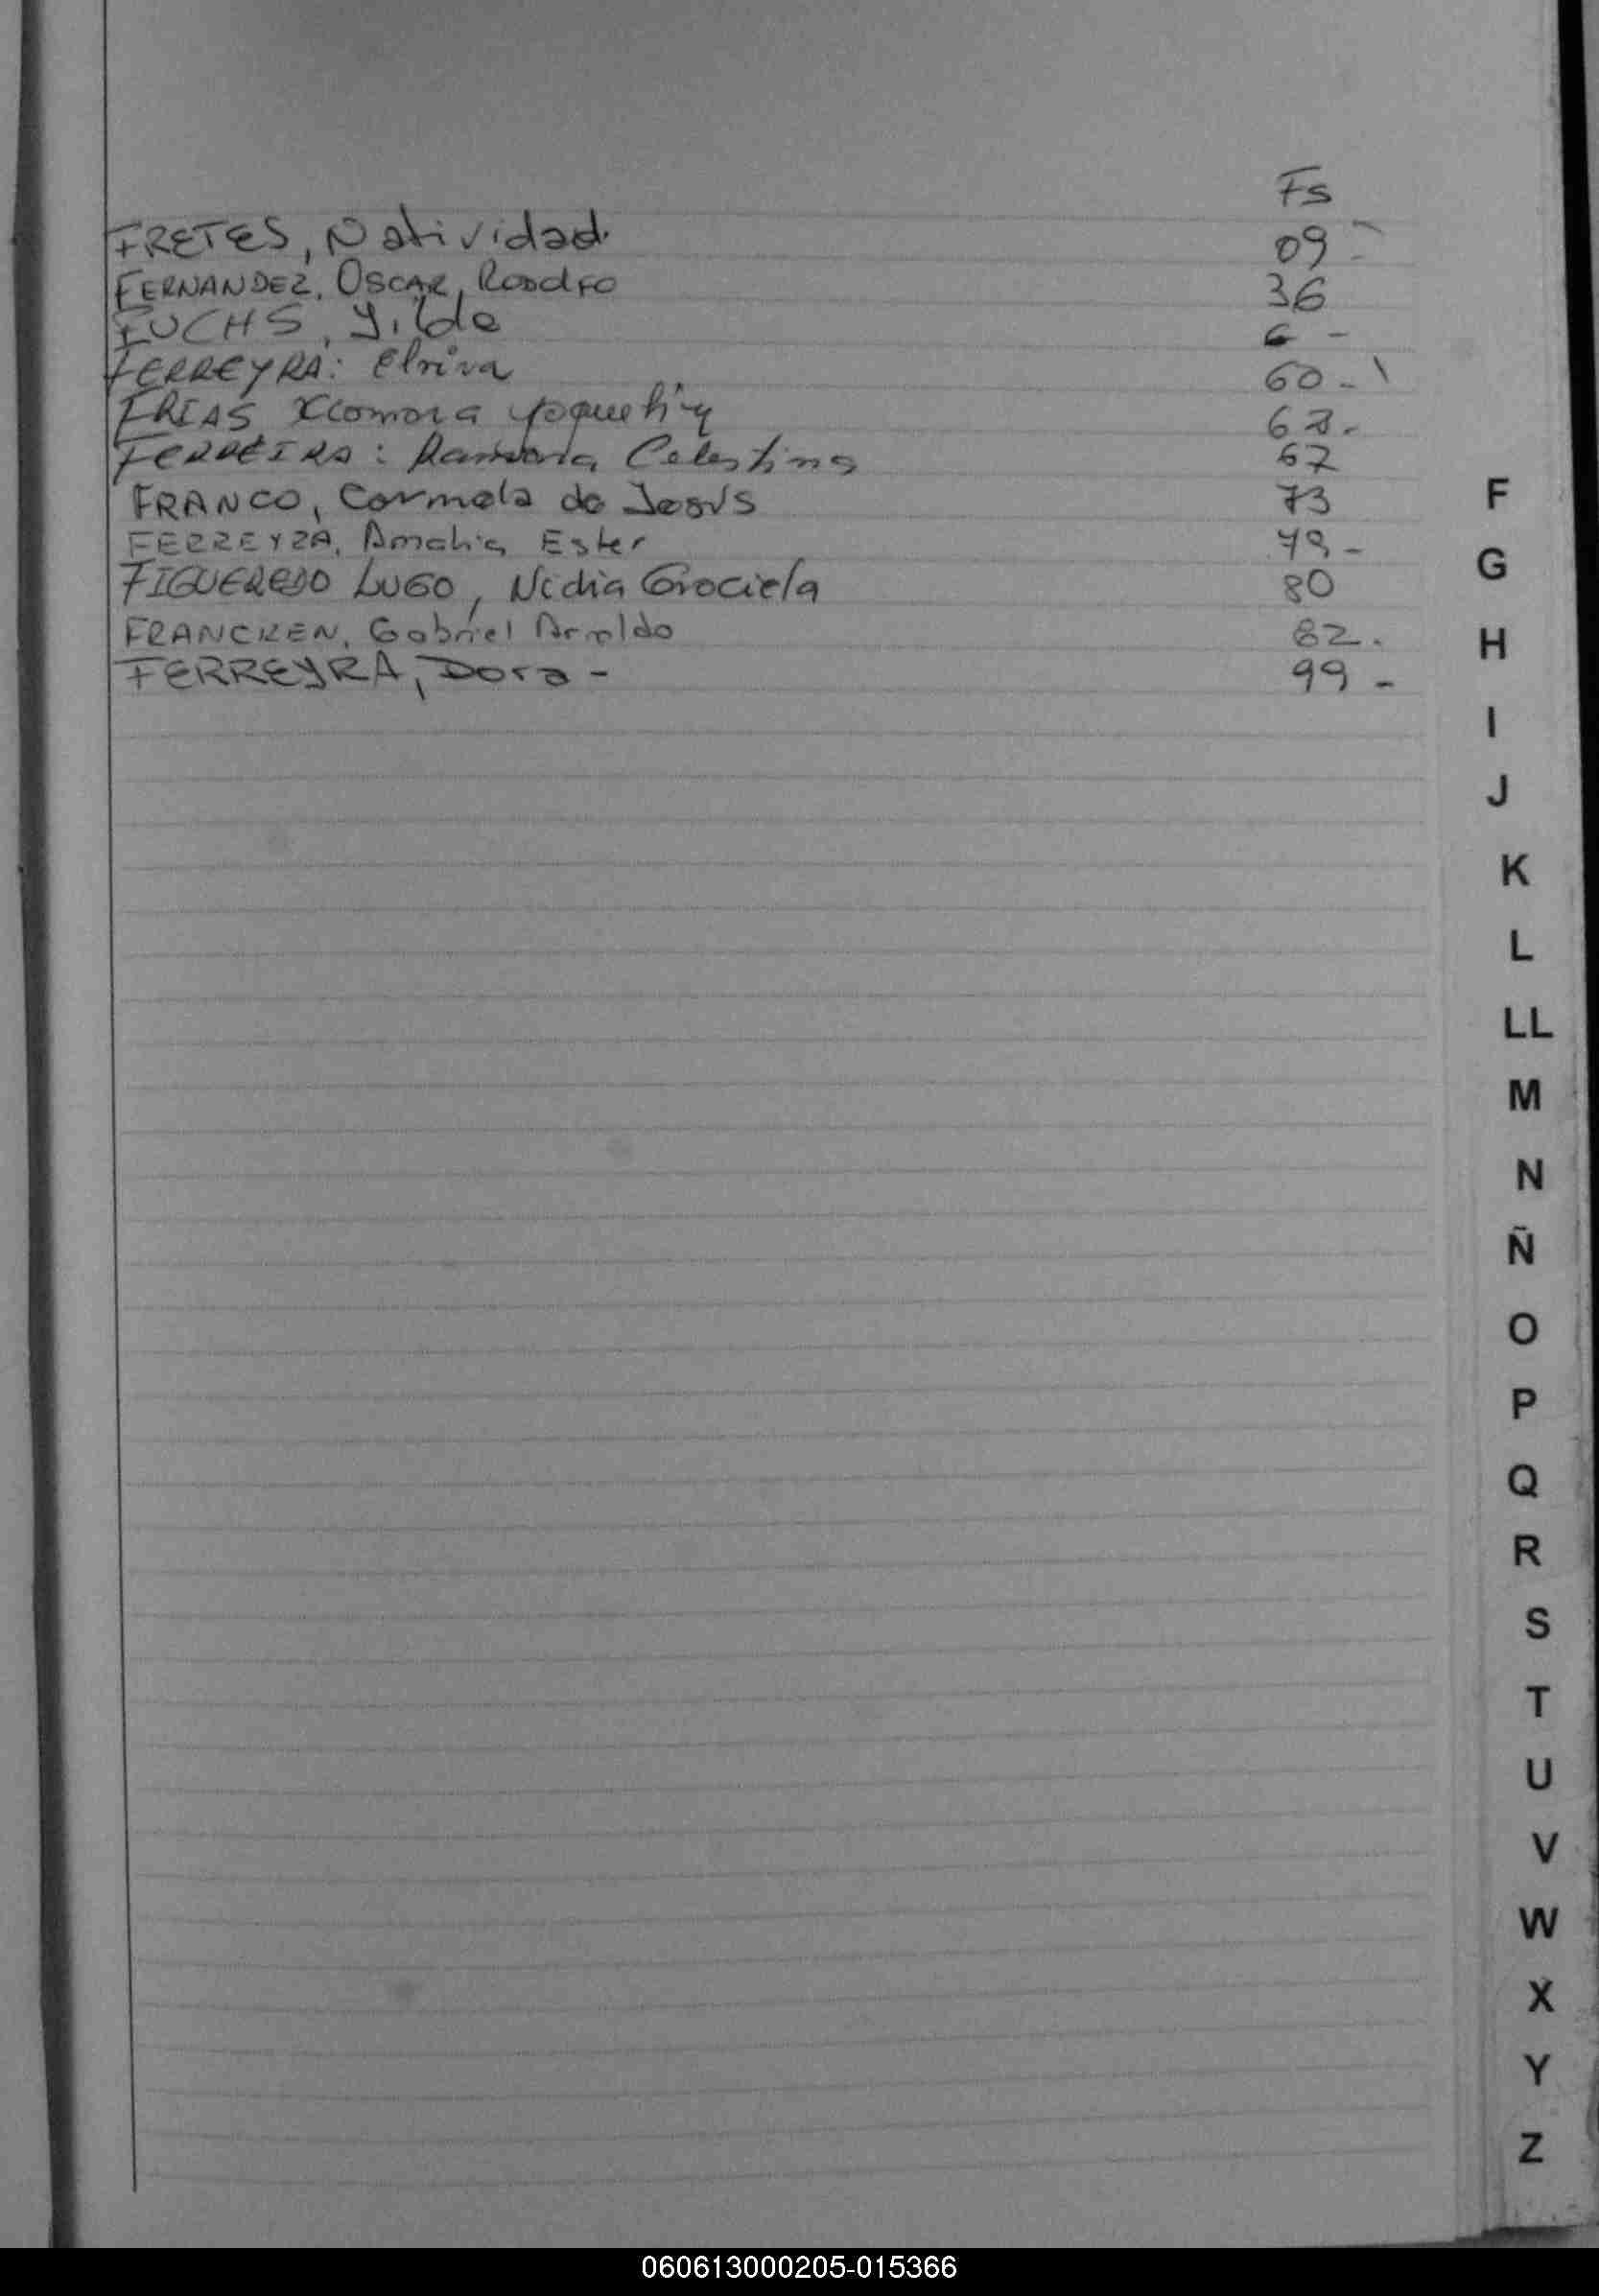 Fs
FRETES, Natividad. 09 -
FERNANDEZ, OSCAR, RODOLFO 36
FUCHS, Yilda 6 -
FERREYRA: Elvira 60 -
FRIAS Xiomara Yoquelin 62.-
FERREIRA: Ramona Celestina 67
FRANCO, Carmela de Jesús 73
FERREYRA, Amalia Ester 79 -
FIGUEREDO LUGO, Nidia Graciela 80
FRANCKEN, Gabriel Arnoldo 82.
FERREYRA, Dora - 99 -
F
G
H
I
J
K
L
LL
M
N
Ñ
O
P
Q
R
S
T
U
V
W
X
Y
Z
060613000205-015366